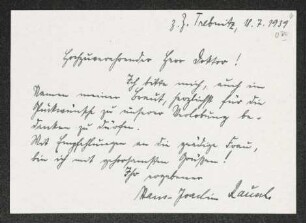 z. Z. Trebnitz, 11.7.1939
Hochzuverehrender Herr Doktor!
Ich bitte mich, auch im
Namen meiner Braut, herzlichst für die
Glückwünsche zu unserer Verlobung be-
danken zu dürfen.
Mit Empfehlungen an die gnädige Frau,
bin ich mit gehorsamsten Grüßen!
Ihr ergebener
Hans-Joachim